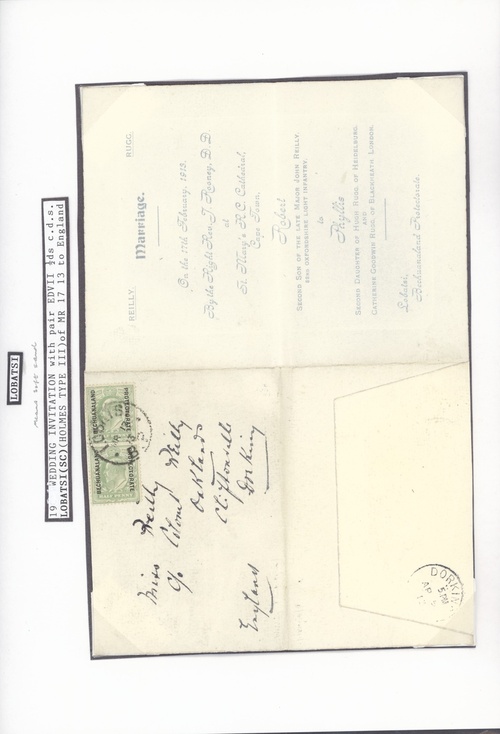 LOBATSI
means soft sand
WEDDING INVITATION with pair EDVII ½ds c.d.s.
LOBATSI(SC)(HOLMES TYPE III)of MR 17 13 to England
REILLY RUGG.
Marriage.
On the 11th February, 1913,
By the Right Rev. J. Rooney, D D
at
St. Mary's R.C. Cathedral,
Cape Town.
Robert
SECOND SON OF THE LATE MAJOR JOHN REILLY,
52ND OXFORDSHIRE LIGHT INFANTRY,
to
Phyllis
SECOND DAUGHTER OF HUGH RUGG, OF HEIDELBURG,
AND
CATHERINE GOODWIN RUGG, OF BLACKHEATH, LONDON.
Lobatsi,
Bechuanaland Protectorate.
BECHUANALAND PROTECTORATE
BECHUANALAND PROTECTORATE
Miss Reilly
c/o Colonel Reilly
Oaklands
Dorking
England
DORKING